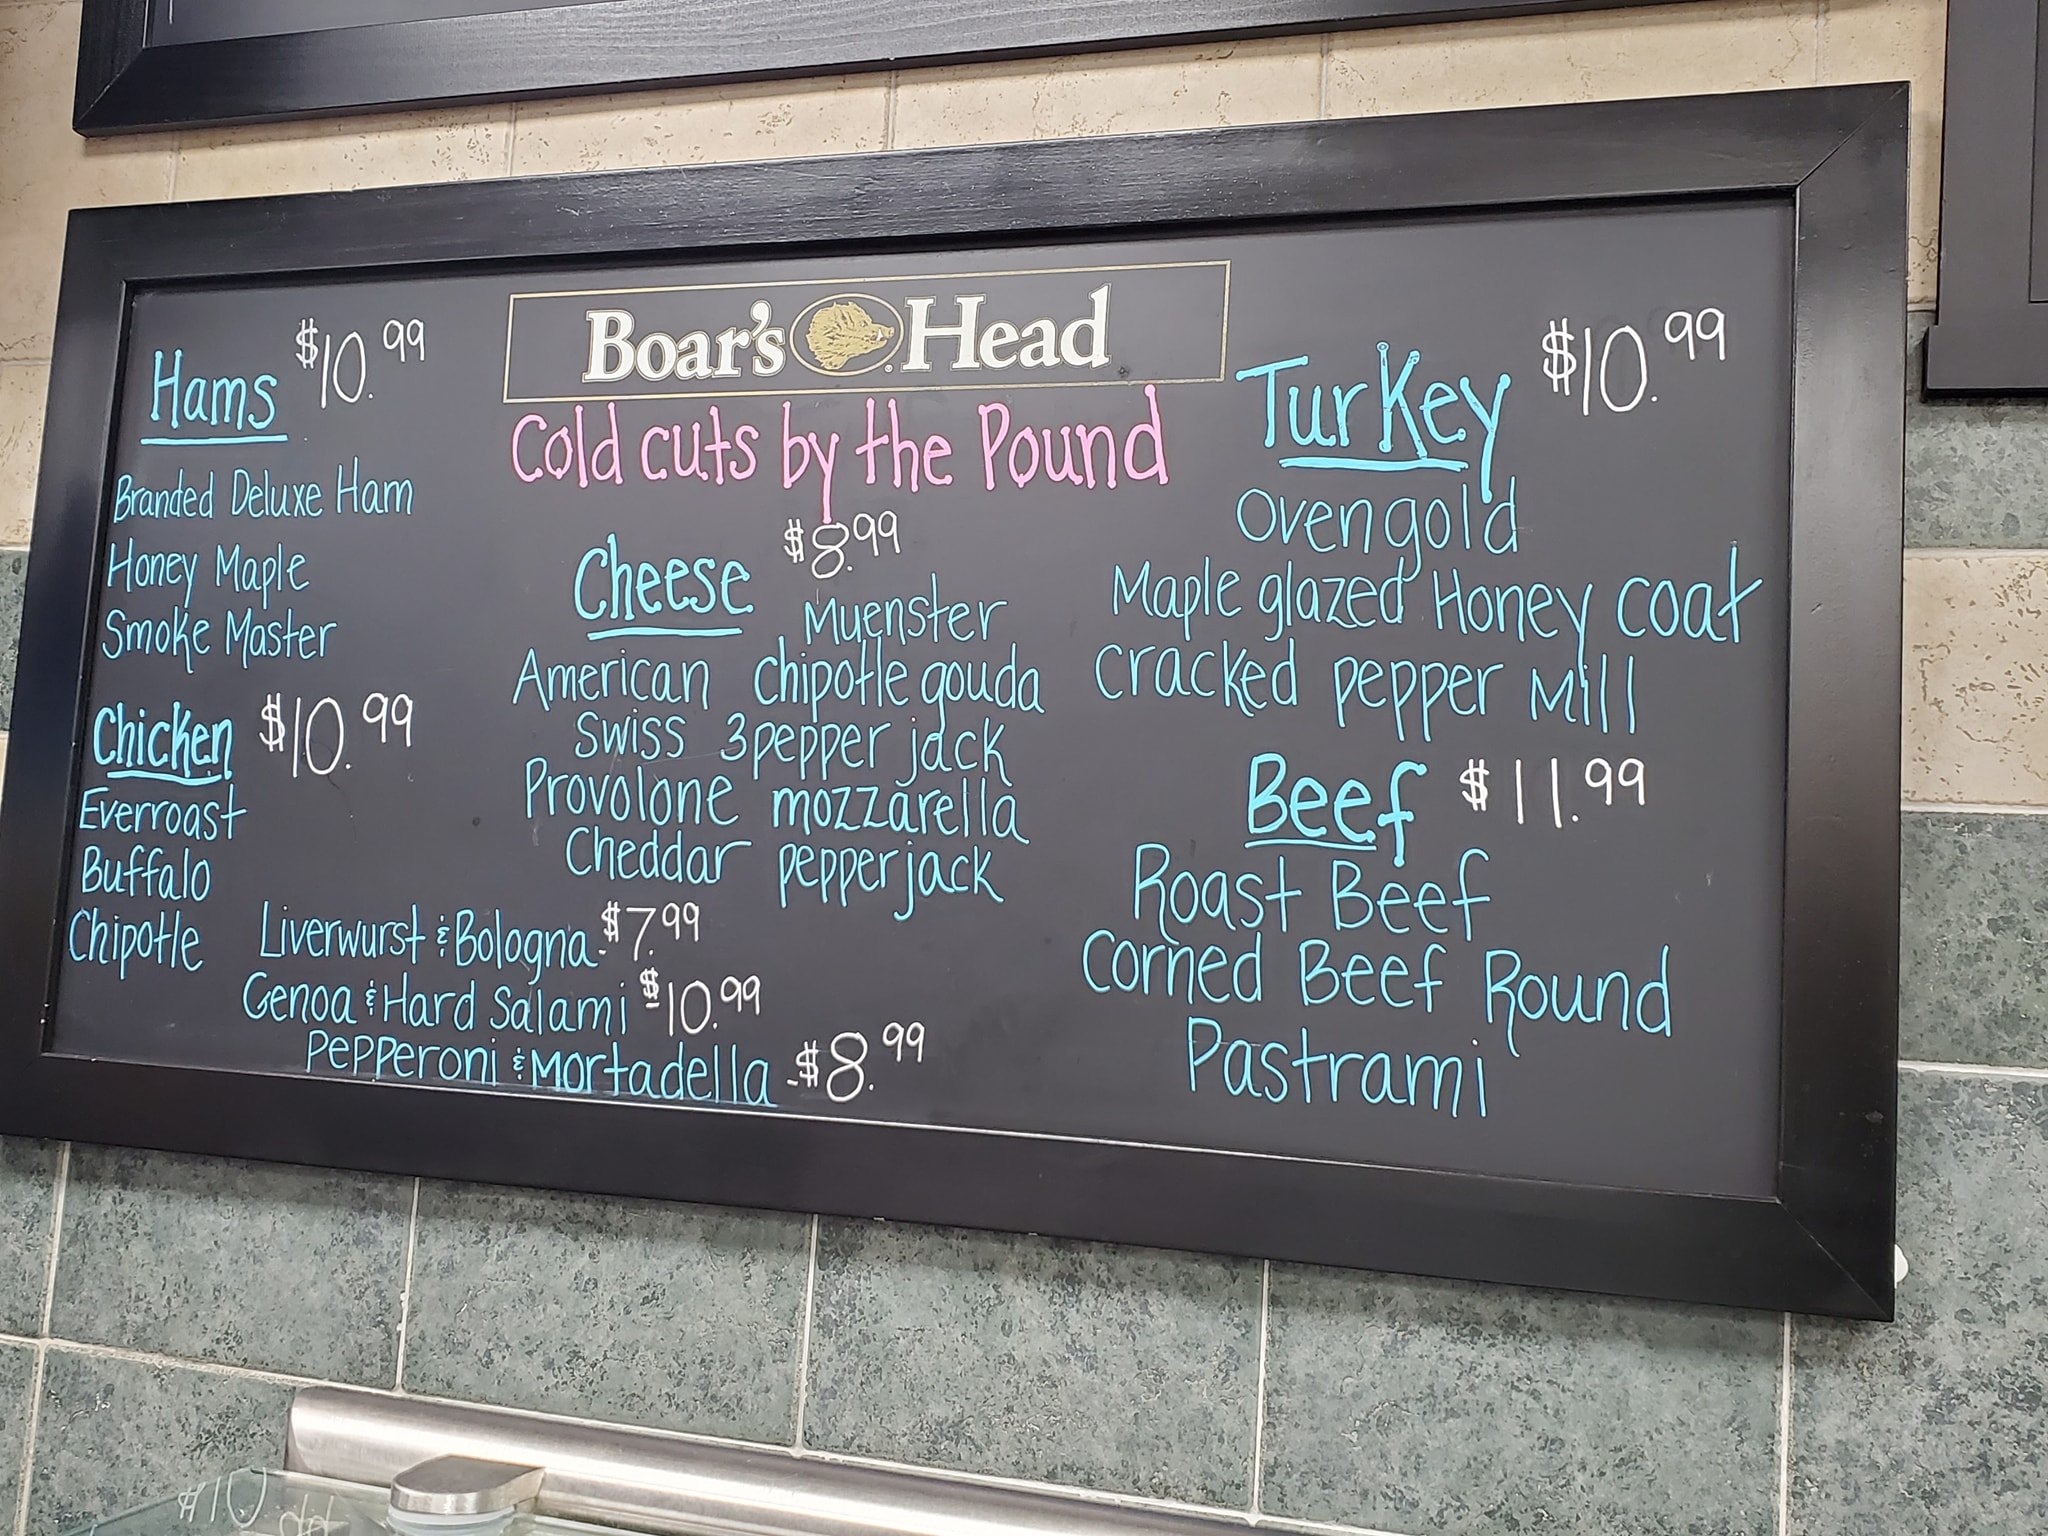 Boar's Head
Cold cuts by the Pound
Hams $10.99
Branded Deluxe Ham
Honey Maple
Smoke Master
Chicken $10.99
Everroast
Buffalo
Chipotle
Cheese $8.99
Muenster
American chipotle gouda
Swiss 3 pepper jack
Provolone mozzarella
Cheddar pepper jack
Liverwurst & Bologna - $7.99
Genoa & Hard Salami $10.99
Pepperoni & Mortadella - $8.99
Turkey $10.99
Ovengold
Maple glazed Honey coat
cracked pepper Mill
Beef $11.99
Roast Beef
Corned Beef Round
Pastrami